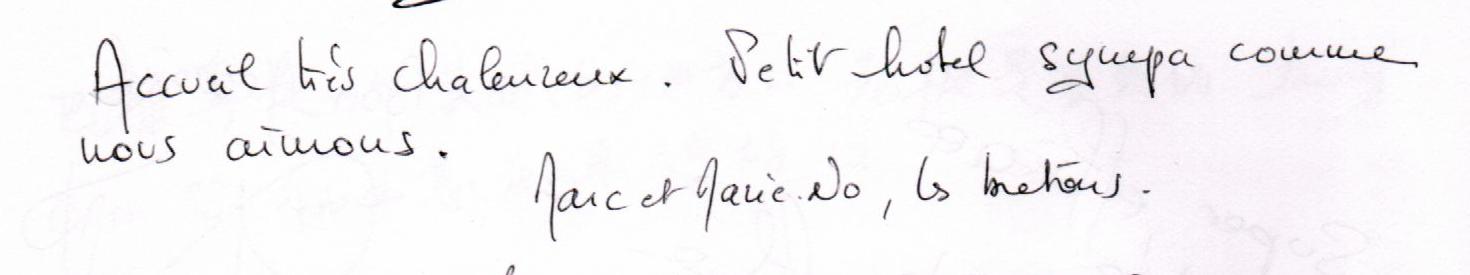 Accueil très chaleureux. Petit hotel sympa comme
nous aimons.
Marc et Marie.No, les bretons.